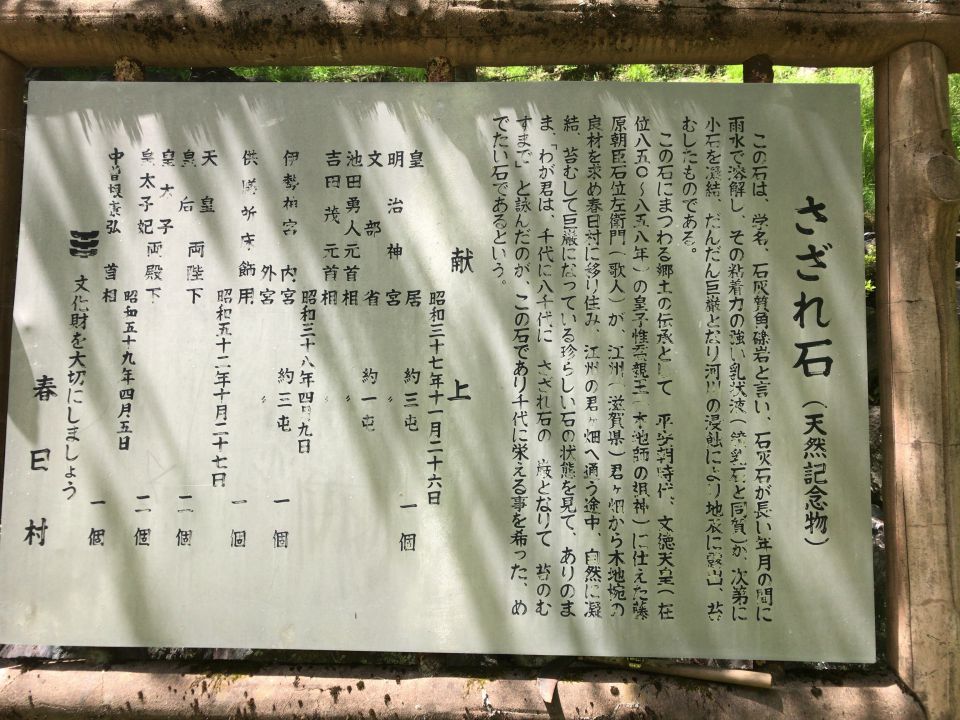 さざれ石（天然記念物）
この石は、学名、石灰質角礫岩と言い、石灰石が長い年月の間に
雨水で溶解し、その粘着力の強い乳状液（鍾乳石と同質）が、次第に
小石を凝結、だんだん巨巌となり河川の浸蝕により地表に露出、苔
むしたものである。
この石にまつわる郷土の伝承として 平安朝時代、文徳天皇（在
位八五〇～八五八年）の皇子惟喬親王（木地師の祖神）に仕えた藤
原朝臣石位左衛門（歌人）が、江州（滋賀県）君ヶ畑から木地椀の
良材を求め春日村に移り住み、江州の君ヶ畑へ通う途中、自然に凝
結、苔むして巨巌になっている珍らしい石の状態を見て、ありのま
ま、「わが君は、千代に八千代に さざれ石の 巌となりて 苔のむ
すまで」と詠んだのが、この石であり千代に栄える事を希った、め
でたい石であるという。
献上
昭和三十七年十一月二十六日
皇居 約三屯 一個
明治神宮 〃
文部省 約一屯
池田勇人元首相 〃
吉田茂元首相 〃
昭和三十八年四月九日
伊勢神宮 内宮 約三屯 一個
外宮 〃
供膳所床飾用 一個
昭和五十二年十月二十七日
天皇
皇后 両陛下 二個
皇太子
皇太子妃 両殿下 二個
昭和五十九年四月五日
中曽根康弘 首相 一個
文化財を大切にしましょう
春日村